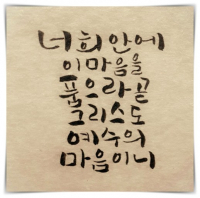 너희안에
이마음을
품으라곧
그리스도
예수의
마음이니